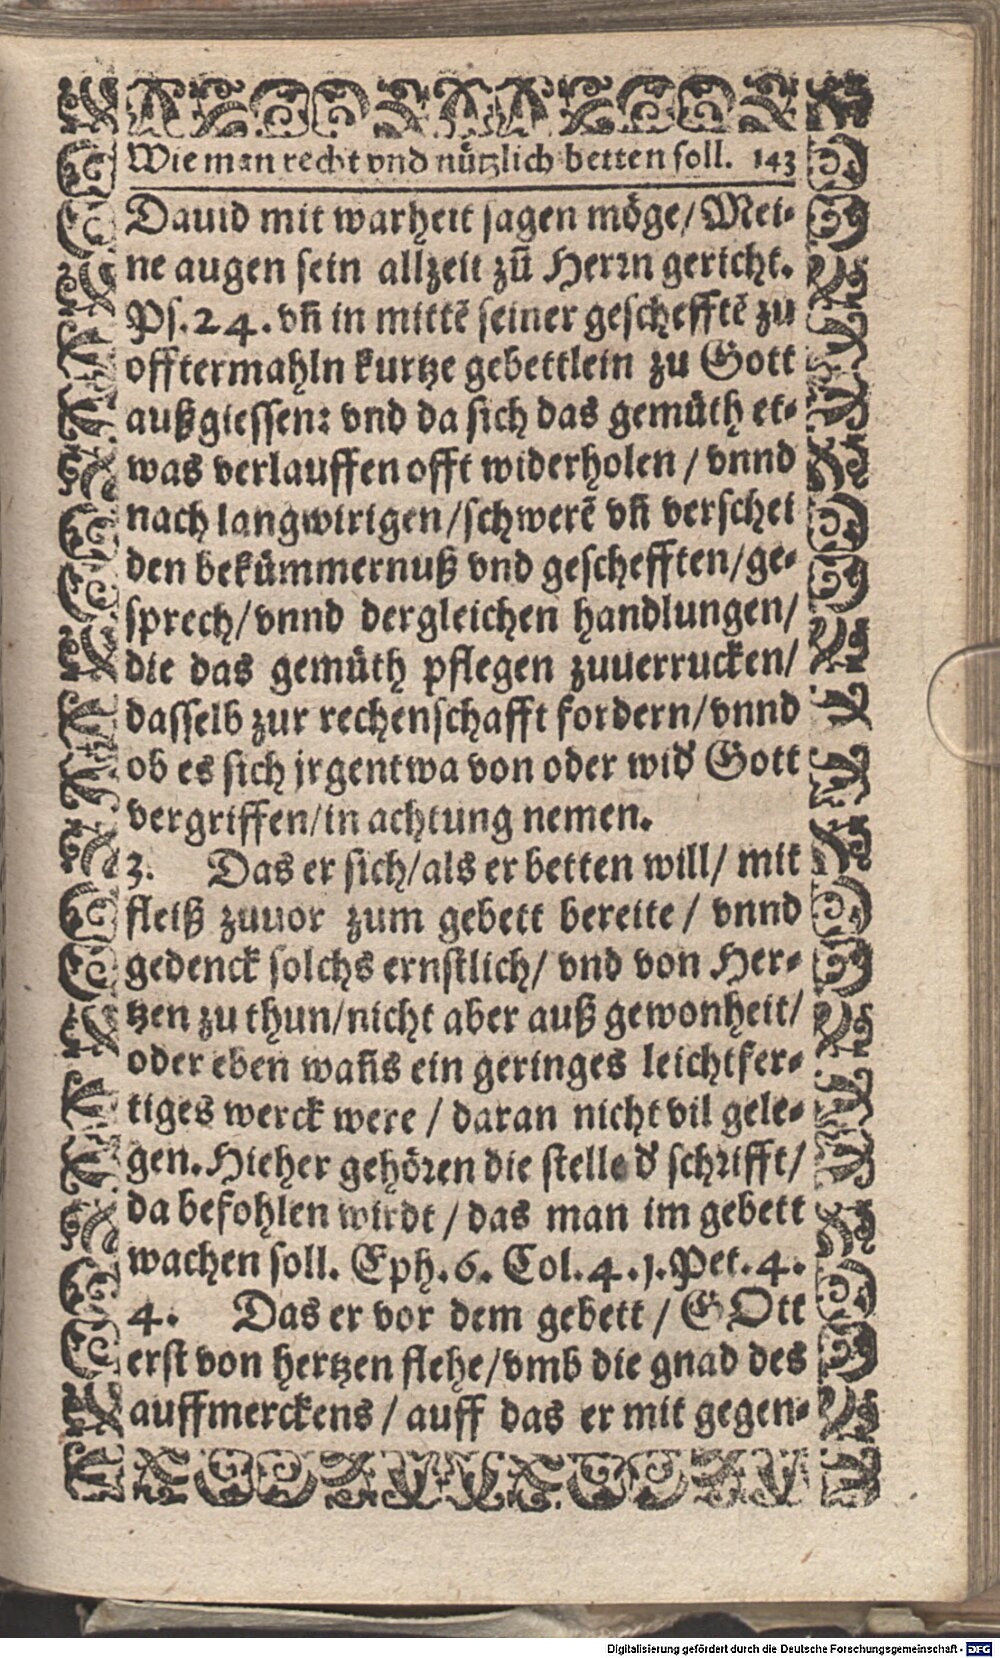 Wie man recht vnd nützlich betten soll. 143
Dauid mit warheit sagen möge/ Mei-
ne augen sein allzeit zū Herrn gericht.
Ps. 24. vñ in mittē seiner geschefftē zu
offtermahln kurtze gebettlein zu Gott
außgiessen: vnd da sich das gemüth et-
was verlauffen offt widerholen / vnnd
nach langwirigen/schwerē vñ verschei
den bekümmernuß vnd geschefften/ge-
sprech/vnnd dergleichen handlungen/
die das gemüth pflegen zuuerrucken/
dasselb zur rechenschafft fordern/vnnd
ob es sich jrgentwa von oder wid̕ Gott
vergriffen/in achtung nemen.
3. Das er sich/als er betten will/ mit
fleiß zuuor zum gebett bereite / vnnd
gedenck solchs ernstlich/ vnd von Her-
tzen zu thun/nicht aber auß gewonheit/
oder eben wañs ein geringes leichtfer-
tiges werck were / daran nicht vil gele-
gen. Hieher gehören die stelle d̕ schrifft/
da befohlen wirdt / das man im gebett
wachen soll. Eph. 6. Col. 4. j. Pet. 4.
4. Das er vor dem gebett / GOtt
erst von hertzen flehe/vmb die gnad des
auffmerckens / auff das er mit gegen-
Digitalisierung gefördert durch die Deutsche Forschungsgemeinschaft - DFG